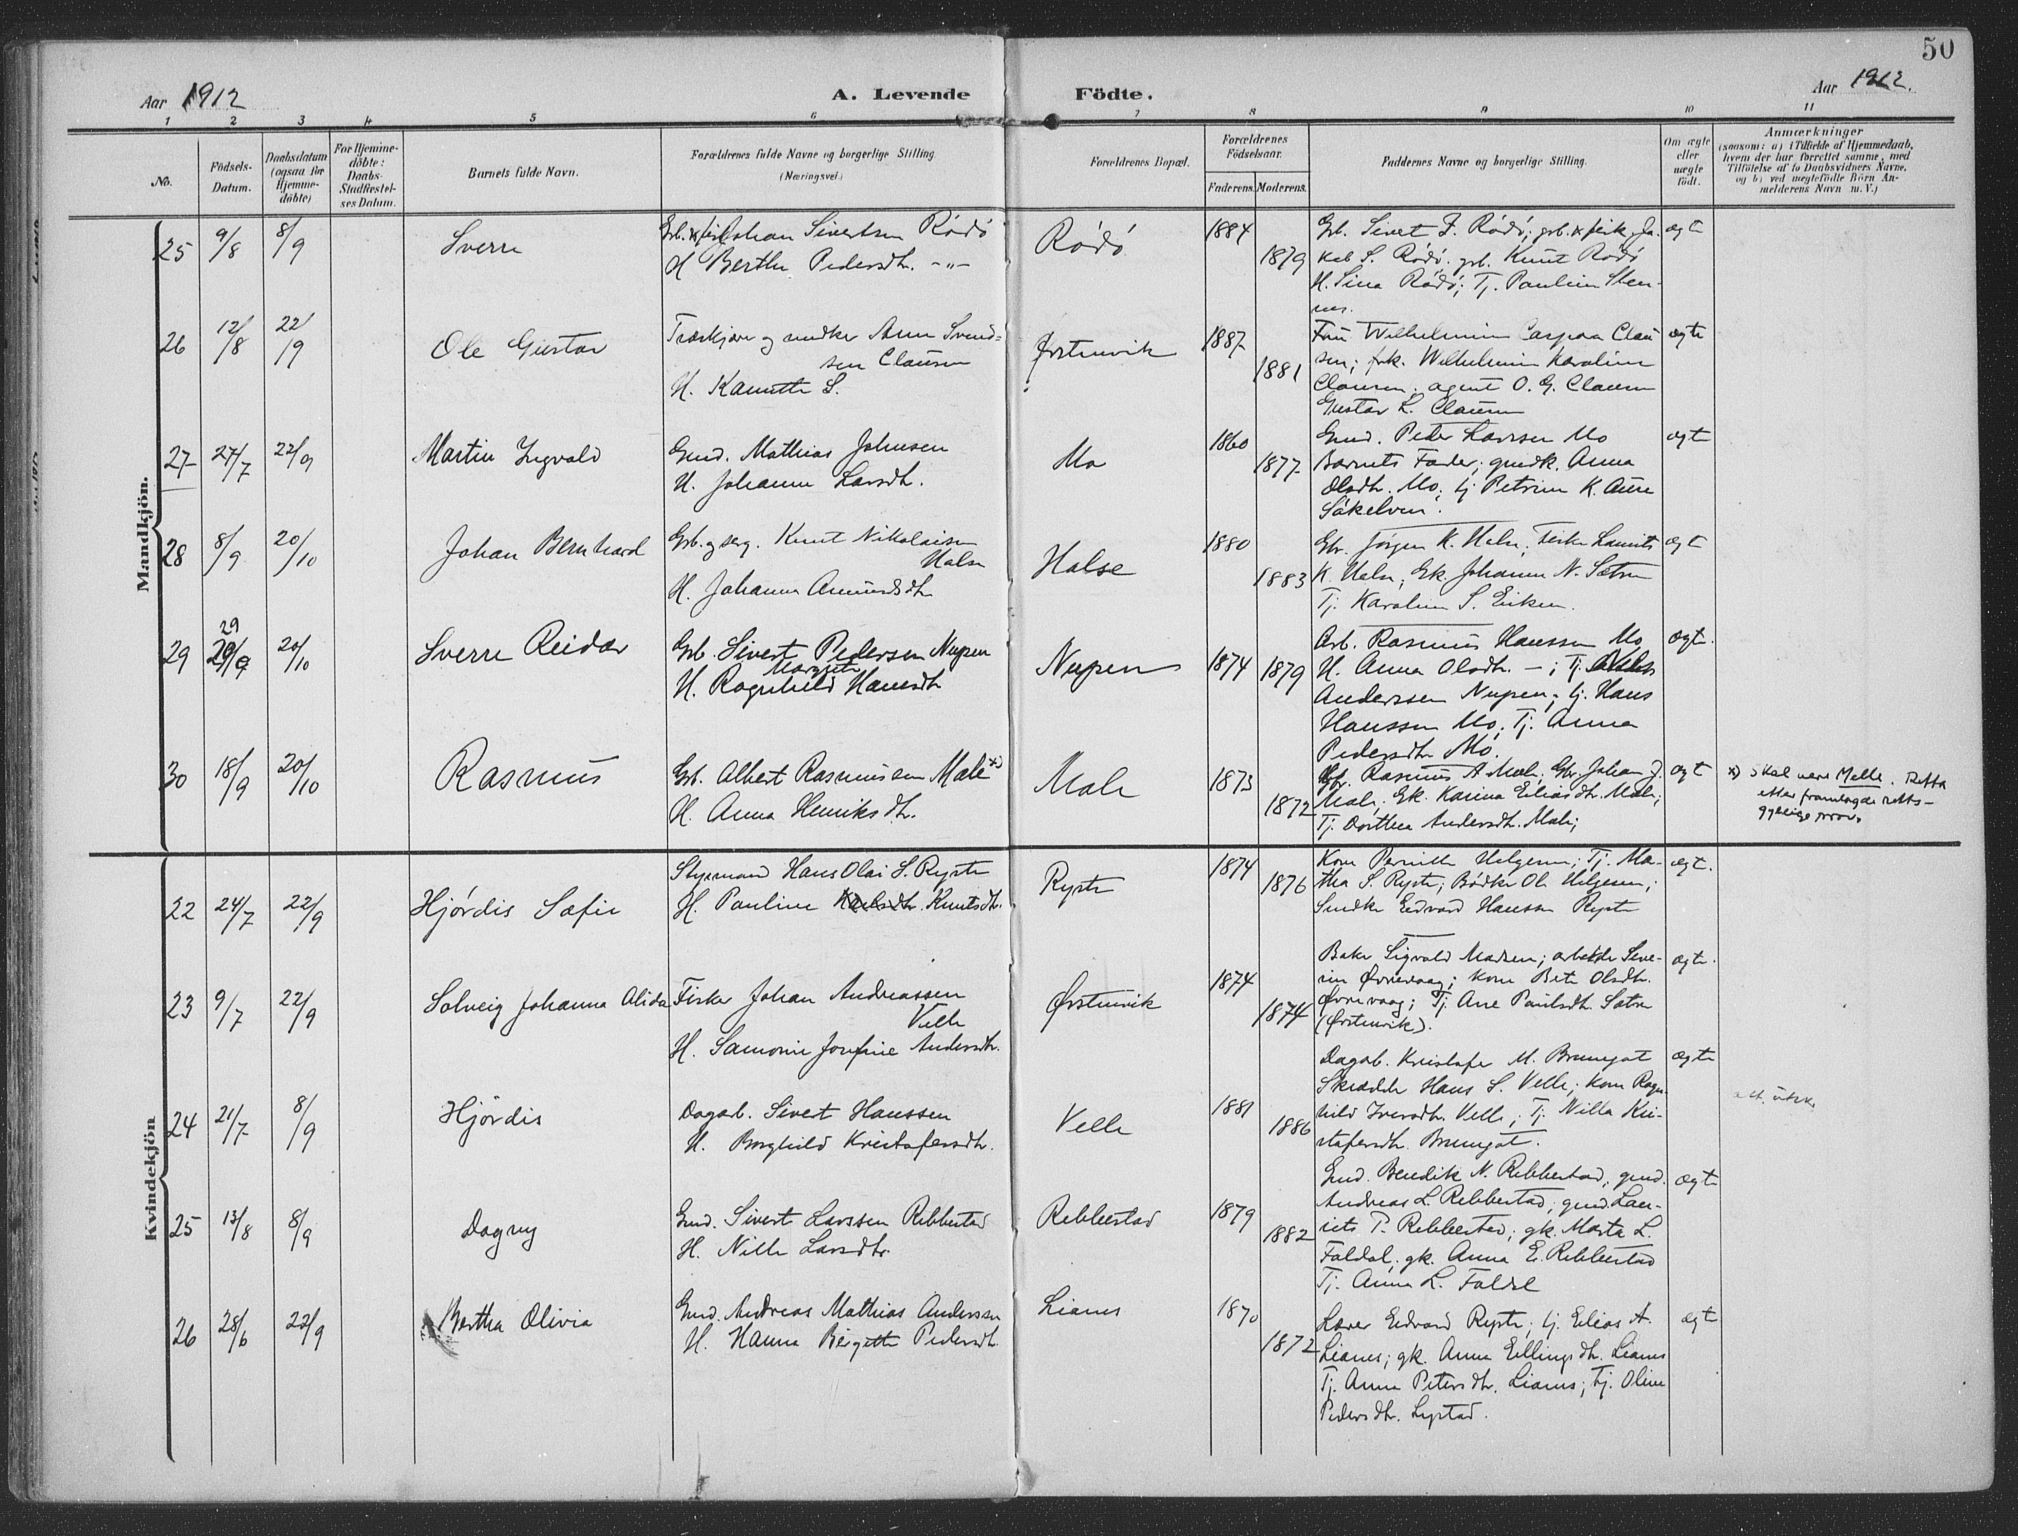 50
Aar 1912
A. Levende Födte.
Aar 1912.
1 2 3 4 5 6 7 8 9 10 11
No.
Födsels-
Datum.
Daabsdatum
(ogsaa for
Hjemme-
döbte)
For Hjemme-
döbte:
Daabs-
Stadfæstel-
ses Datum.
Barnets fulde Navn.
Forældrenes fulde Navne og borgerlige Stilling
(Næringsvei.)
Forældrenes Bopæl.
Forældrenes
Födselsaar.
Faderens. Moderens.
Faddernes Navne og borgerlige Stilling.
Om ægte
eller
uægte
födt.
Anmærkninger
(saasom: a) i Tilfælde af Hjemmedaab,
hvem der har forrettet samme, med
Tilföielse af to Daabsvidners Navne,
og b) ved uegtefödte Börn An-
melderens Navn m. V.)
Mandkjön.
25 9/8 8/9 Sverre
Johan Sivertsen Rödö
H. Berthe Pedersdt. -"-
Rödö 1884 1879
Gbr. Sivert F. Rödö; grb. & fisk. Ja-
kob S. Rödö. grb. Knut Rödö
H. Sina Rödö; Tj. Pauline Sten-
nes.
ægt
26 12/8 22/9 Ole Gustav
Træskjærer og snedker Arne Svend-
sen Clausen
H. Kanutte S.
Ørstenvik 1887 1881
Fru Wilhelmine Caspara Clau
sen; frk. Wilhelmine Karoline
Clausen. agent O. G. Clausen
Gustav L. Clausen
ægte
27 27/7 22/9 Martin Ingvald
Gmd. Mathias Johnsen
H. Johanne Larsdt.
Mo 1860 1877
Gmd. Peder Larssen Mo
Barnets Fader; gmdk. Anna
Olsdt. Mo; tj Petrine K. Aure
Sökelven.
ægt
28 8/9 20/10 Johan Bernhard
Grb. og serg. Knut Nikolaisen
Halse
H. Johanne Amundsdt.
Halse 1880 1883
Gbr. Jörgen K. Halse; Fisker Laurits
K. Halse; Gk. Johanne N. Sætre
Tj. Karoline S. Eiksen.
ægt
29 29/9 20/10 Sverre Reidar
Grb. Sivert Pedersen Nupen
Margrete
H. Ragnhild Hansdt.
Nupen 1874 1879
Arb. Rasmus Hanssen Mo
H. Anna Olsdt. -; Tj.
Anderssen Nupen; tj. Hans
Hanssen Mo; Tj. Anna
Pedersdtr Mo.
ægt.
30 18/9 20/10 Rasmus
Grb. Albert Rasmussen Male x)
H. Anna Henriksdt.
Male 1873 1872
Gbr. Rasmus A. Male; Gbr Johan J.
Male; Gk. Karina Eliasdt. Male;
Tj. Dorthea Andersdt. Male;
ægt
x) Skal være Melle. Retta
etter framlagde retts-
gyldige prov.
Kvindekjön
22 24/7 22/9 Hjördis Sofie
Styrmand Hans Olai S. Ryste
H. Pauline Knutsdt.
Ryste 1874 1876
Kone Pernille Helgesen; Tj. Ma-
tha S. Ryste; Bödker Ole Helgesen;
Smdk Edvard Hanssen Ryste
ægt.
23 9/7 22/9 Solveig Johanna Alida
Fisker Johan Andreassen
Velle
H. Samonie Josefine Andersdt.
Ørstenvik 1874 1874
Baker Sigvald Madsen; arbeider Seve-
rin Øvrevaag; kone Berte Olsdt.
Øvrevaag; Tj. Ane Paulsdt. Sætre
(Ørstenvik).
ægt.
24 21/7 8/9 Hjördis
Dagarb. Sivert Hanssen
H. Borghild Kristofersdt.
Velle 1881 1886
Dagarb. Kristofer M. Brungot
Skrædder Hans S. Velle; kone Ragn
hild Iversdt. Velle; Tj. Nilla Kri-
stofersdt. Brungot.
ægte
25 13/8 8/9 Dagny
Gmd. Sivert Larssen Rebbestad
H. Nille Larsdtr.
Rebbestad 1879 1882
Gmd. Bendik N. Rebbestad; gmd.
Andreas L. Rebbestad; gmd. Lau-
rits P. Rebbestad; gk. Marta L.
Foldal; gk. Anna E. Rebbestad
Tj. Anna L. Foldal
ægte
26 28/6 22/9 Bertha Olivia
Gmd. Andreas Mathias Anderssen
H. Hanna Bergitte Pedersdt.
Lianes 1870 1872
Lærer Edvard Ryste; tj. Elias A.
Lianes; gk. Anna Ellingsdt. Lianes
Tj. Anna Petersdtr. Lianes; Tj. Oline
Pedersdtr. Lystad.
ægt